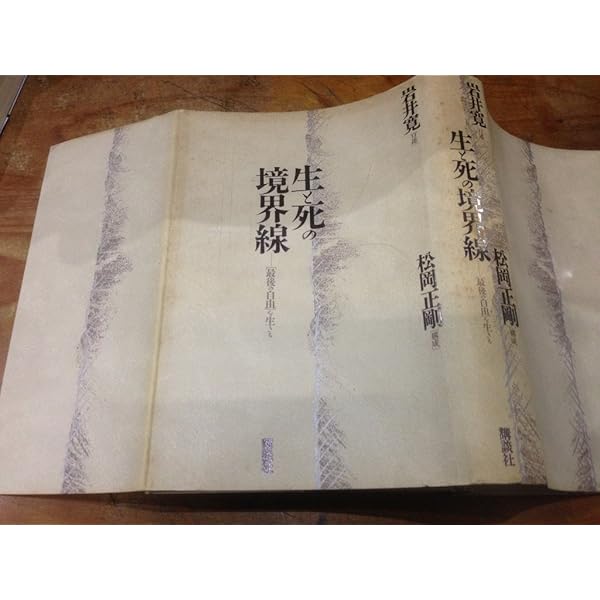 岩井寛 口述
生と死の
境界線
─「最後の自由」を生きる
松岡正剛 構成
講談社
岩井寛 口述
生と死の境界線
「最後の自由」を生きる
松岡正剛 構成
講談社